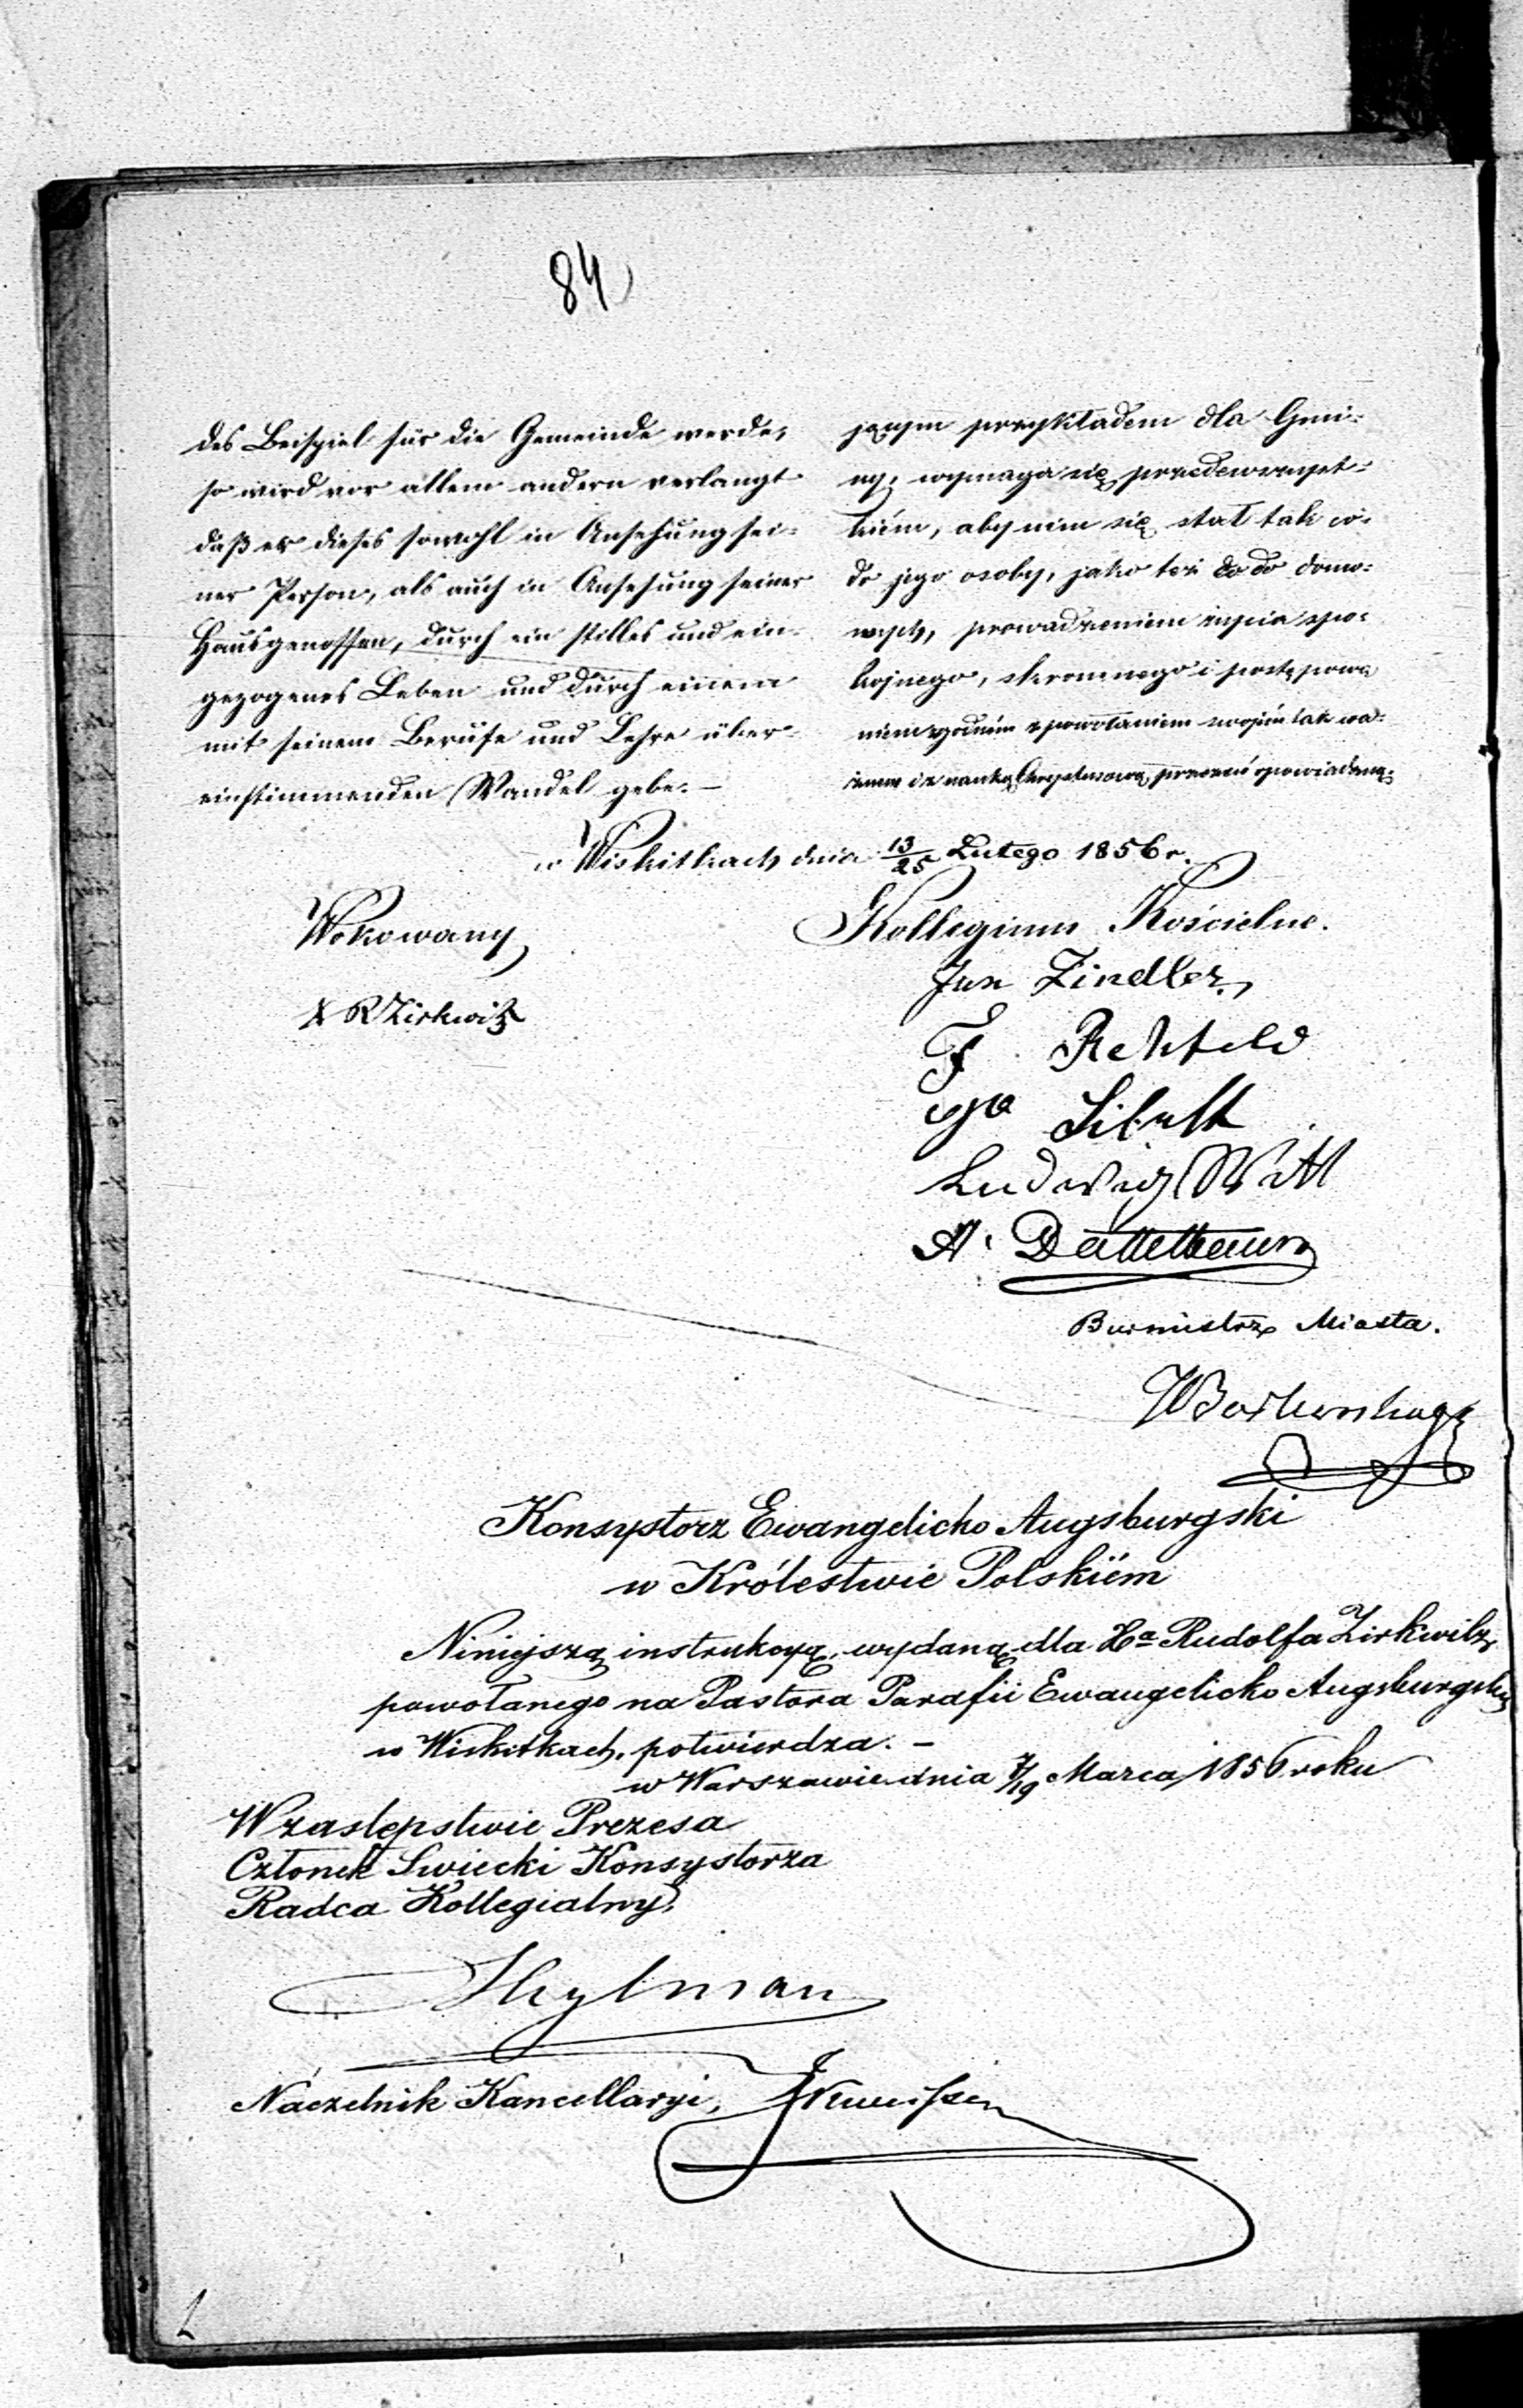 84
des Beispiel für die Gemeinde werde,
so wird vor allem andern verlangt
daß er dieses sowohl in Ansehung sei-
ner Person, als auch in Ansehung seiner
Hausgenossen, durch ein stilles und ein-
gezogenes Leben und durch einem
mit seinem Berufe und Lehre über-
einstimmenden Wandel gebe. —
jącym przykładem dla Gmi-
ny, wymaga się przedewszyst-
kiém, aby nim się stał tak co-
do jego osoby, jako też co do domo-
wych, prowadzeniem życia spo-
kojnego, skromnego i postępowa
niem zgodném z powołaniem swojém tak wa-
żnem i z nauką Chrystusową, przezeń opowiadaną.
w Wiskitkach dnia 13/25 Lutego 1856 r.
Wokowany
X R Zirkwitz
Kollegium Kościelne.
Jan Zindler
F. Rehfeld
Ludwig Witt
A. Dattelbaum
Burmistrz Miasta.
Konsystorz Ewangelicko Augsburgski
w Królestwie Polskiém
Niniejszą instrukcyą, wydaną dla Xa Rudolfa Zirkwitz,
powołanego na Pastora Parafii Ewangelicko Augsburgskiej
w Wiskitkach, potwierdza. —
w Warszawie dnia 7/19 Marca 1856 roku
W zastępstwie Prezesa
Członek Swiecki Konsystorza
Radca Kollegialny,
Naczelnik Kancellaryi,